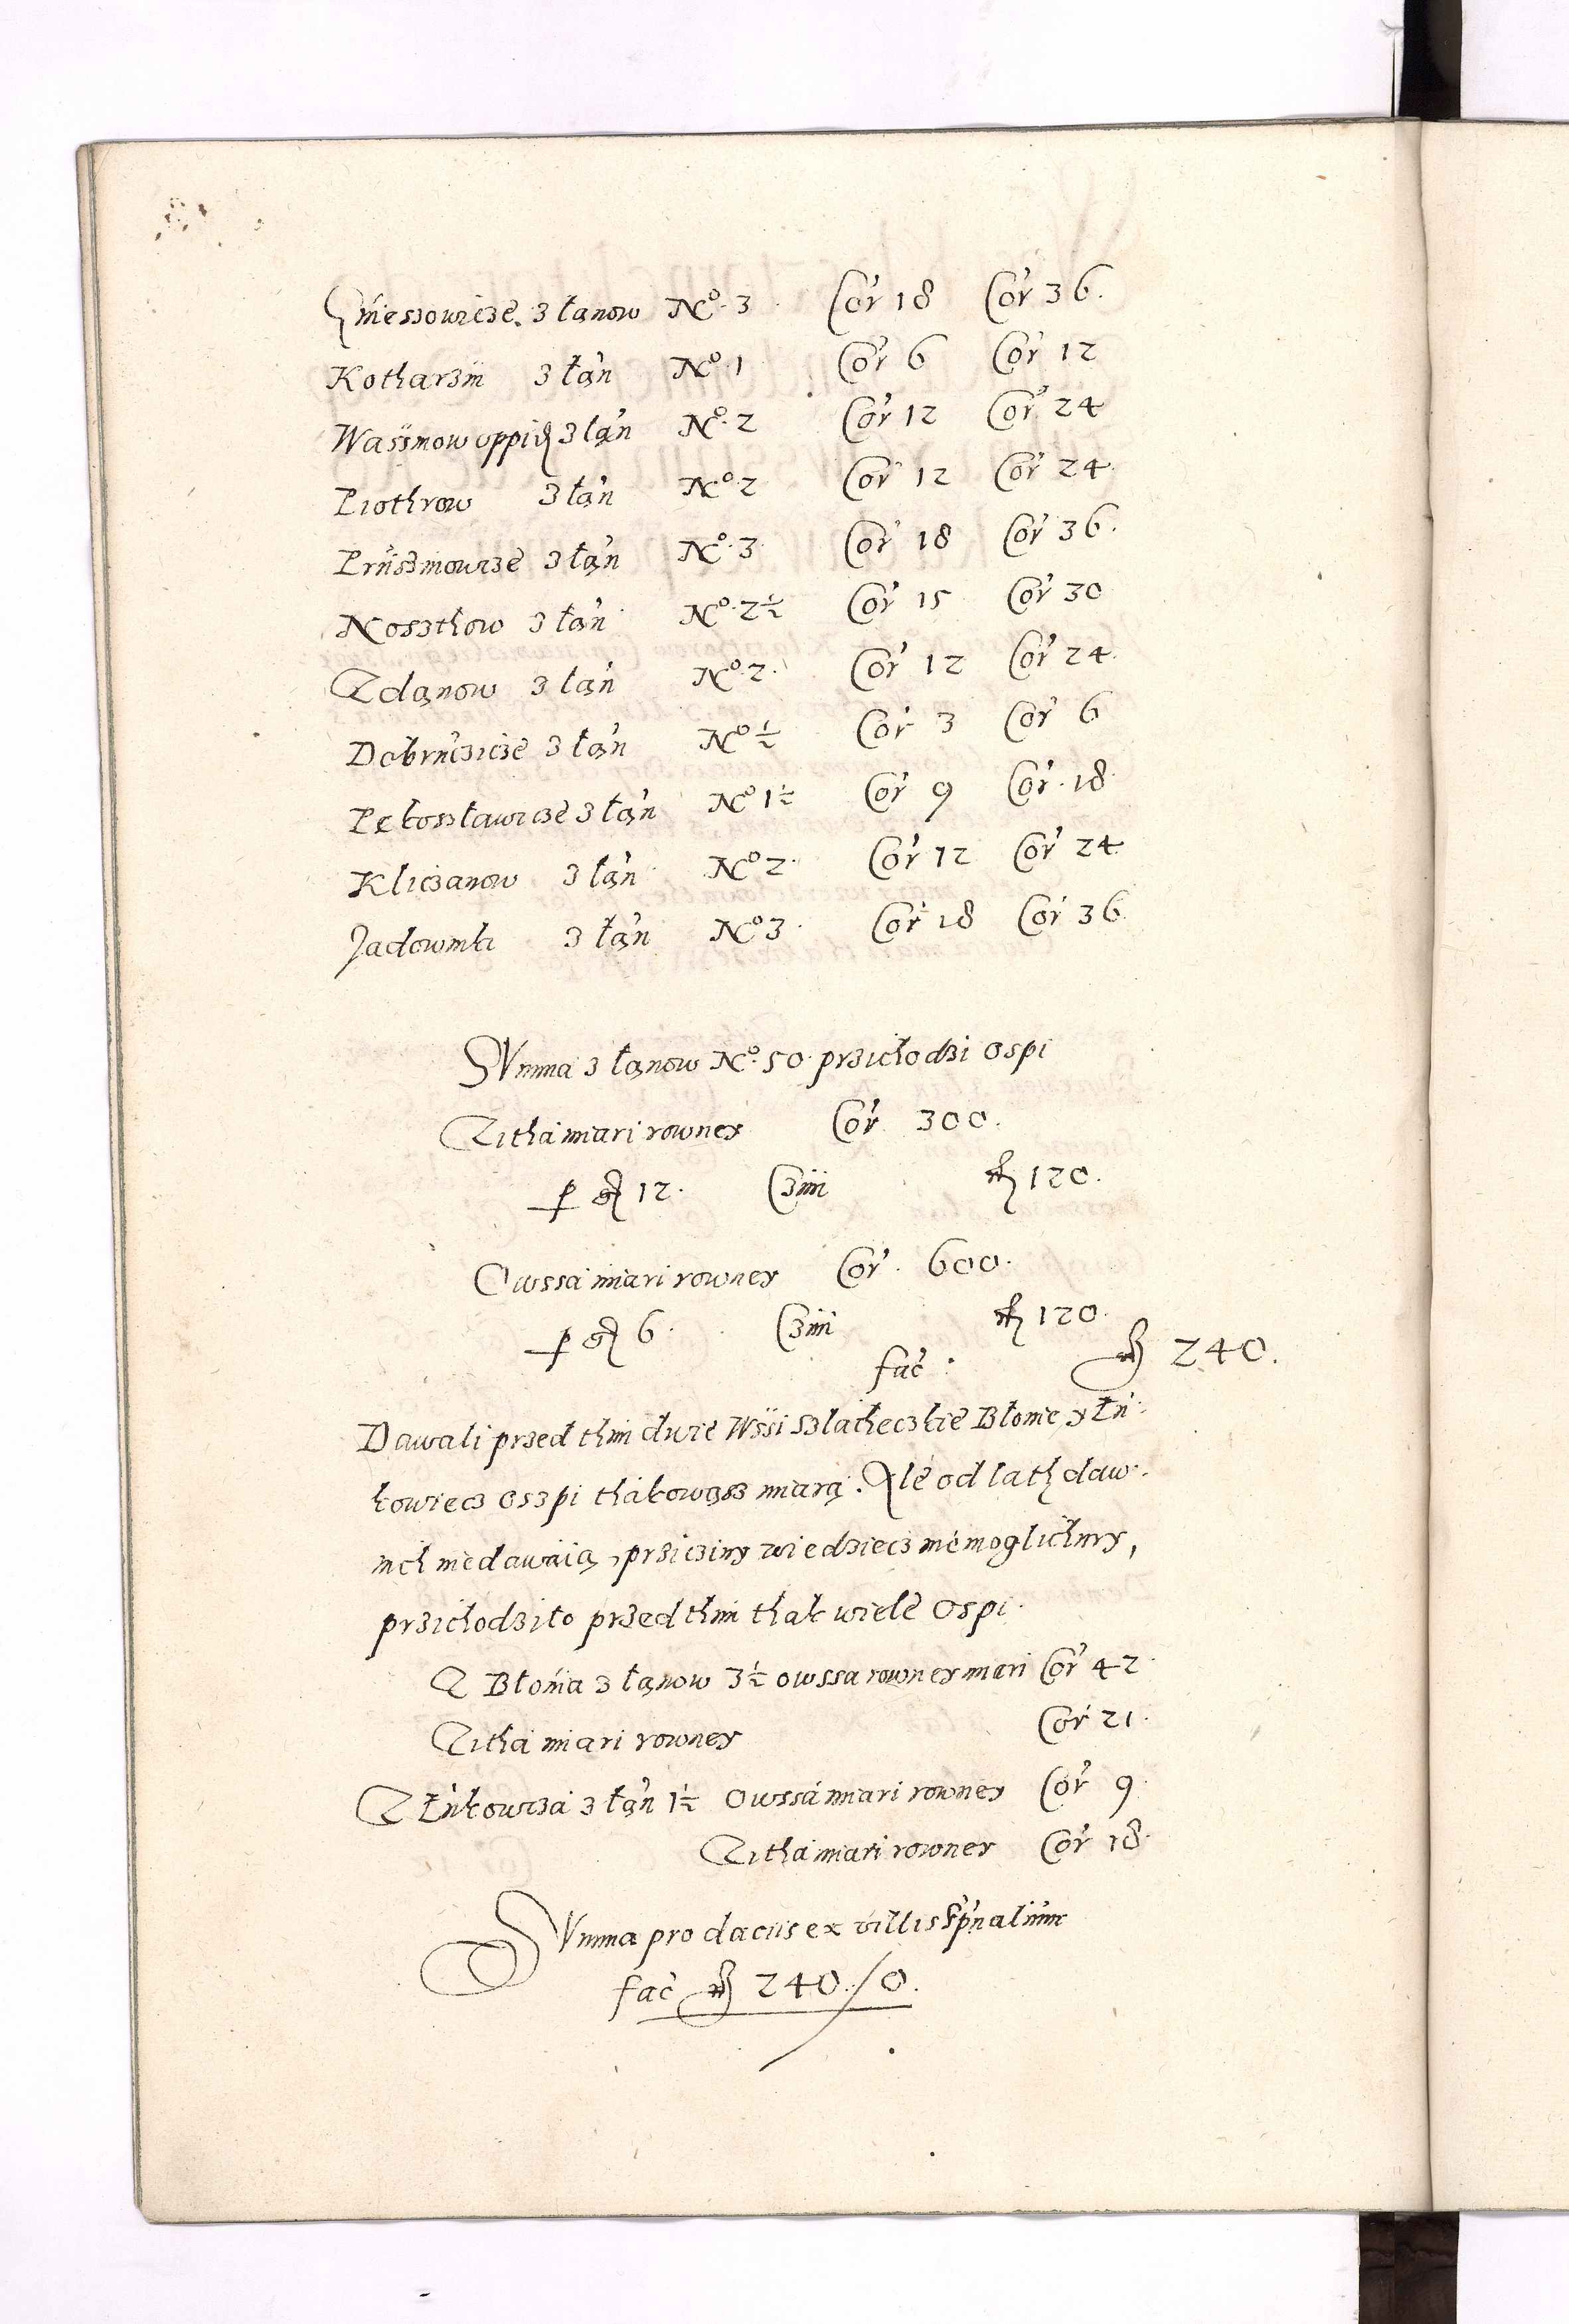 Gniessowicze. z łanow No. 3 Cor 18 Cor 36.
Kotharzin z łan No. 1 Cor 6 Cor 12
Wassniow oppid z łan No. 2 Cor 12 Cor 24
Piothrow z łan No. 2 Cor 12 Cor 24.
Prussinowze z łan No. 3 Cor 18 Cor 36.
Noszthow z łan No. 2½ Cor 15 Cor 30
Zdanow z łan No. 2. Cor 12 Cor 24.
Dobruczicze z łan No ½ Cor 3 Cor 6
Pekoszławicze z łan No 1½ Cor 9 Cor. 18.
Kliczanow z łan No 2. Cor 12 Cor 24
Jadownika z łan No 3. Cor 18 Cor 36
Summa z łanow No. 50 przichodzi ospi
Zitha miari rowney Cor 300.
p gr 12. Czini 120.
Owssa miari rowney Cor. 600.
p gr 6. Czini 120.
fac. 240.
Dawali przed thim dwie Wssi szlacheczkie Błonie y Łu:
kowiecz oszpi thakowąsz miarą. Ale od lath daw:
nich niedawaią, przicziny wiedziecz niemoglichmy,
przichodziło przed thim thak wiele Ospi.
Z Błonia z łanow 3½ owssa rowney miari Cor 42.
Zitha miari rowney Cor 21.
Z Łukowcza z łan 1½ Owssa miari rowney Cor 9.
Zitha miari rowney Cor 18.
Summa pro daciis ex villis
fac 240./0.